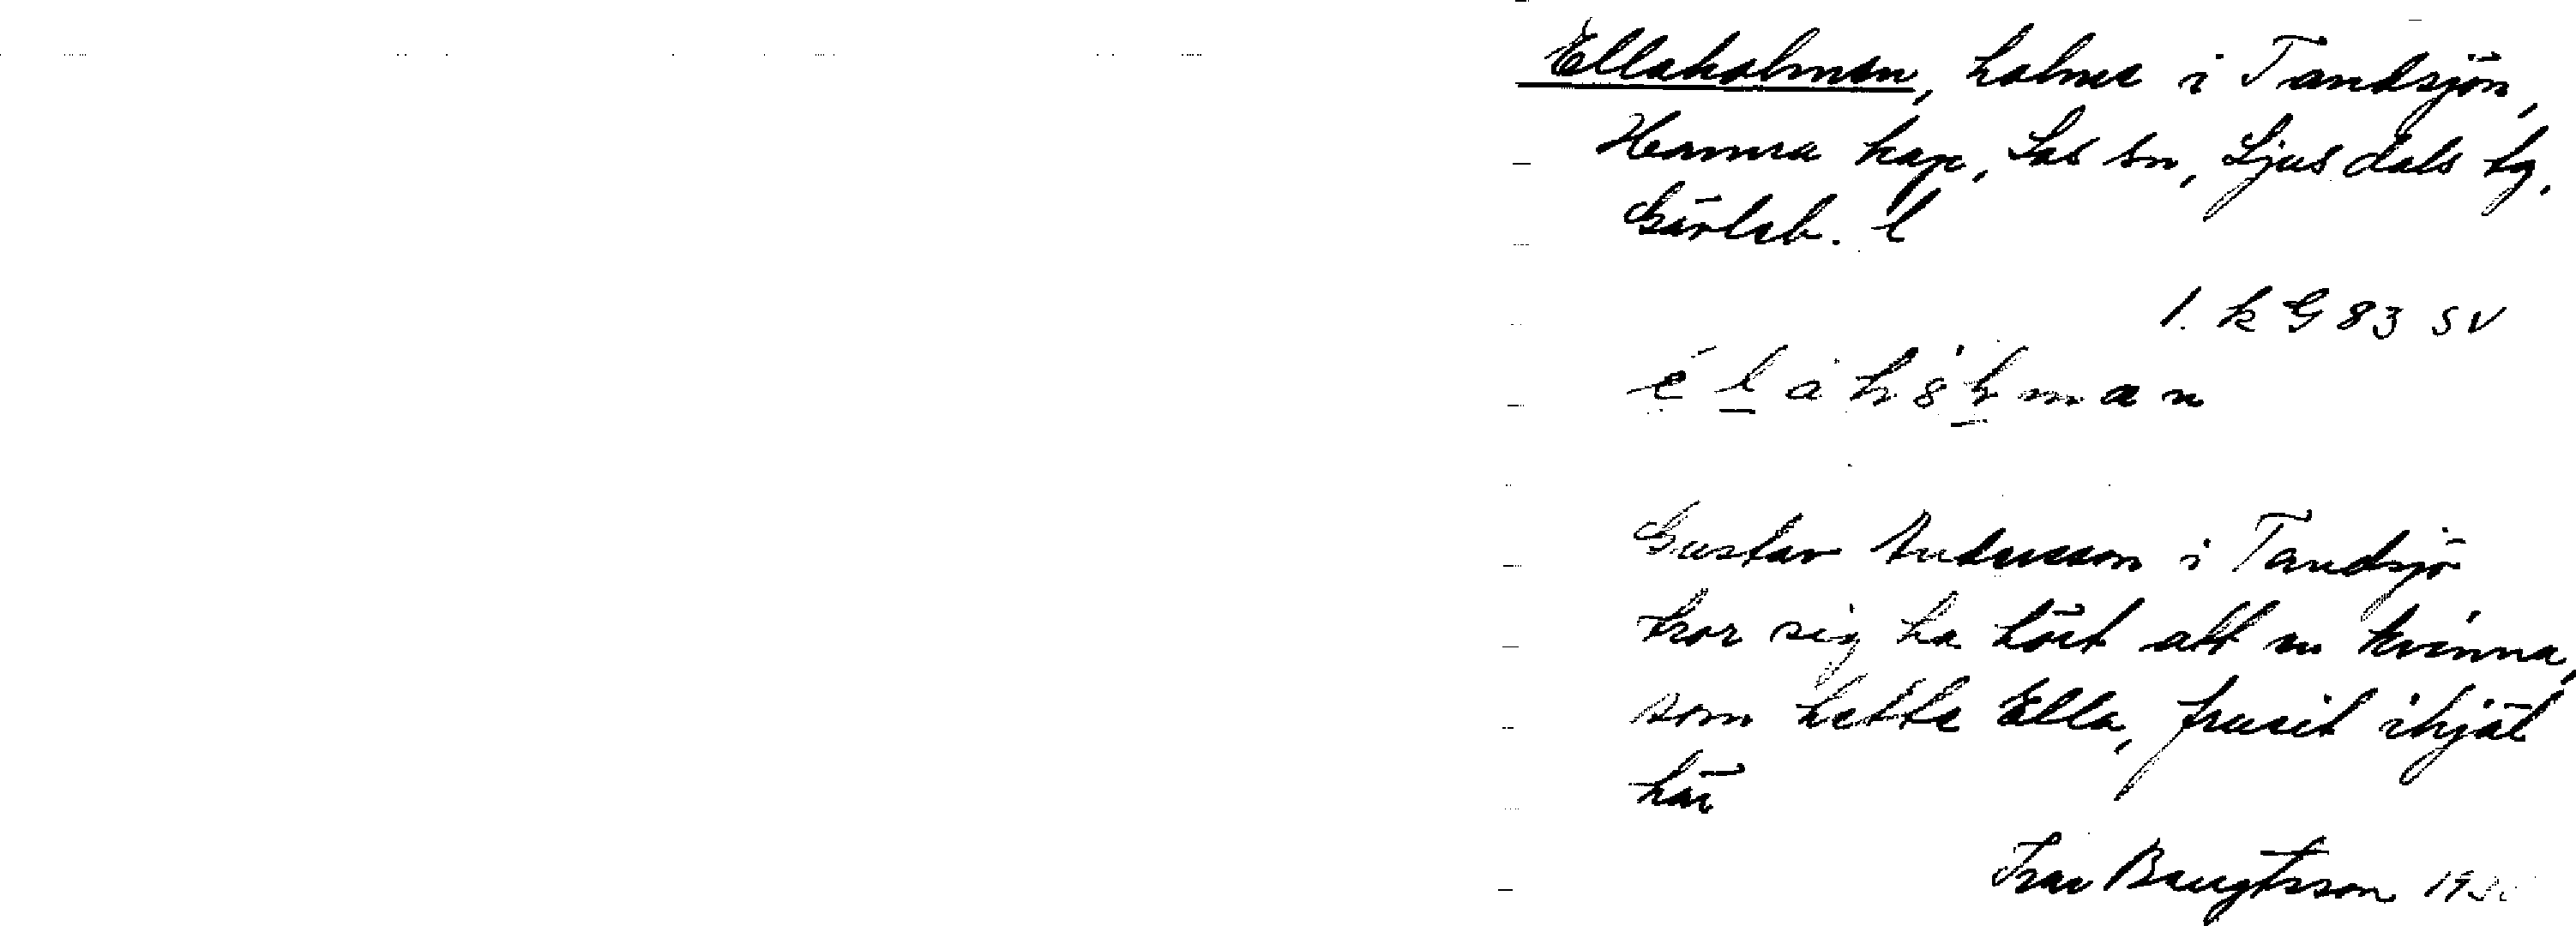 Ellaholmen, holme i Tandsjön,
Hamra kap, Los sn, Ljusdals tg,
Gävleb. l
1. k G 83 SV
Gustav Andersson i Tandsjö
tror sig ha hört att en kvinna,
som hette Ella, frusit ihjäl
här
Ivar Bengtsson